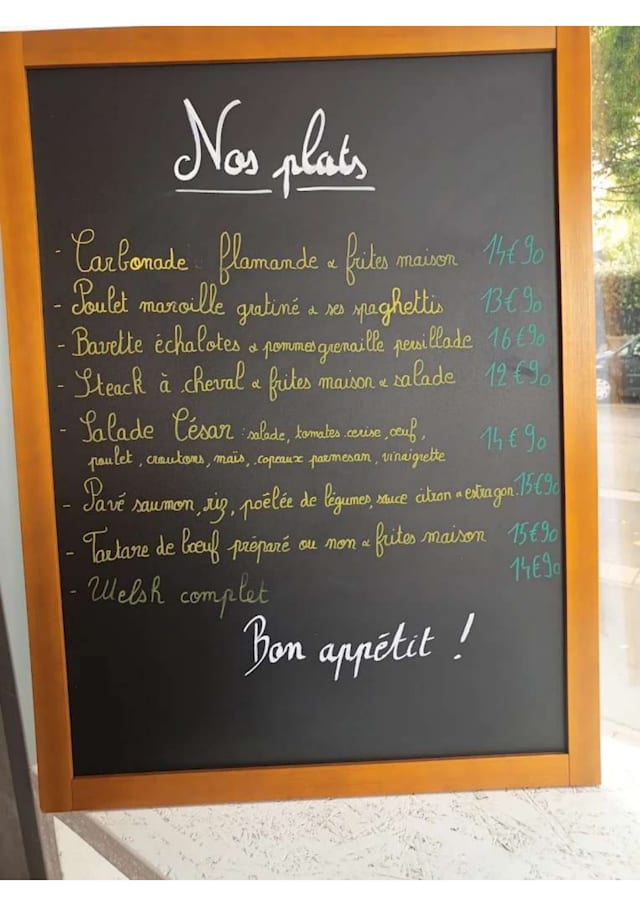 Nos plats
- Carbonade flamande & frites maison 14€90
- Poulet maroille gratiné & ses spaghettis 13€90
- Bavette échalotes & pommes grenaille persillade 16€90
- Steack à cheval & frites maison & salade 12€90
- Salade César : salade, tomates cerise, œuf, 14€90
poulet, croutons, maïs, copeaux parmesan, vinaigrette
- Pavé saumon, riz, poêlée de légumes, sauce citron & estragon. 15€90
- Tartare de bœuf préparé ou non & frites maison 15€90
- Welsh complet 14€90
Bon appétit !